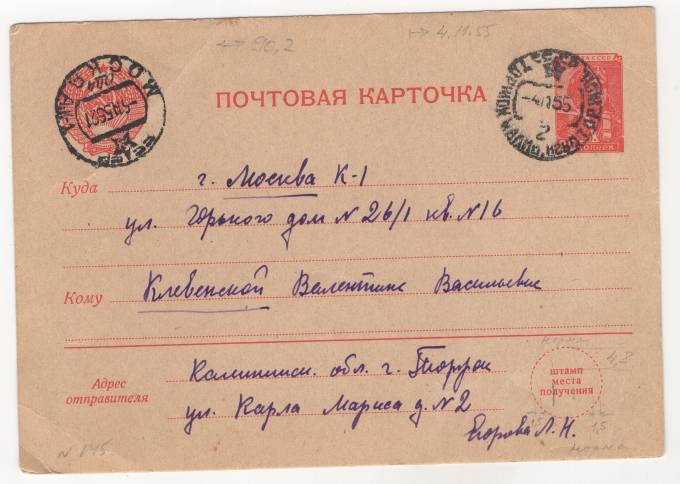 90,2
4.11.55
МОСКВА
ПОЧТОВАЯ КАРТОЧКА
-4 11 55
2
Куда г. Москва К-1
ул. Горького дом N 26/1 кв. N 16
Кому Клевенской Валентине Васильевне
Адрес отправителя
Калининск. обл. г. Торжок
ул. Карла Маркса д. N 2
Егорова Л. Н.
штамп
места
получения
норма
4,8
1,5
норма
N 145